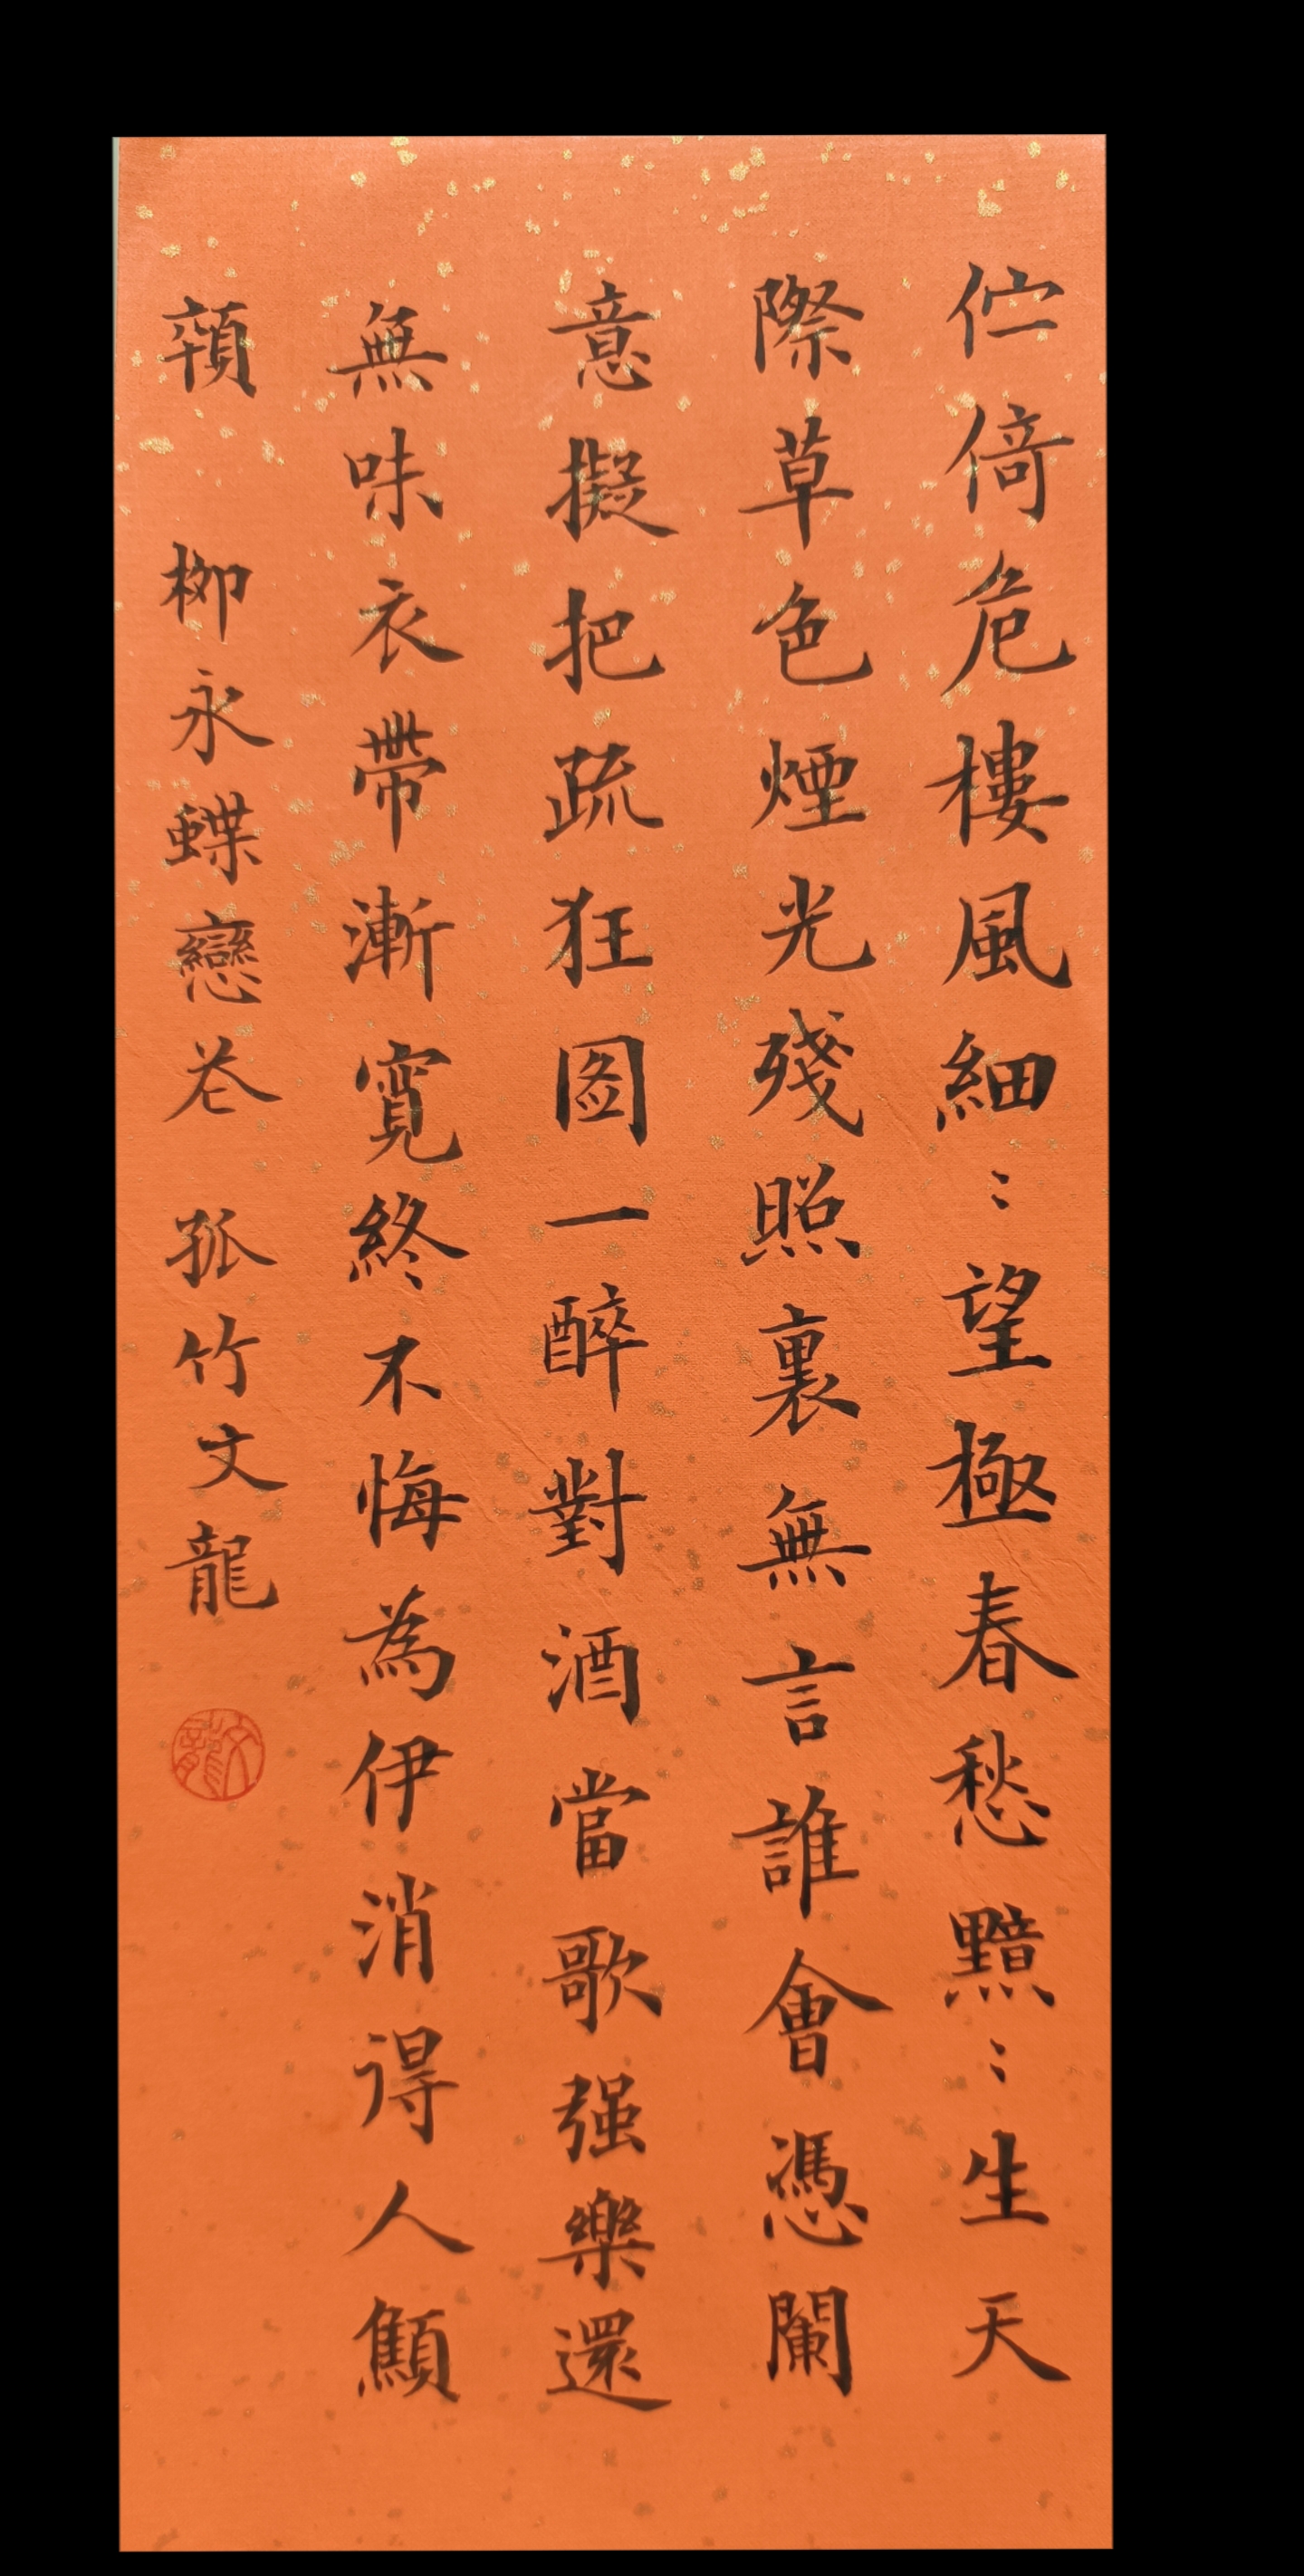 佇倚危樓風細⺀望極春愁黯⺀生天
際草色煙光殘照裏無言誰會憑闌
意擬把疏狂图一醉對酒當歌强樂還
無味衣帶漸寬終不悔為伊消得人顦
顇 柳永蝶戀花 孤竹文龍
文龍